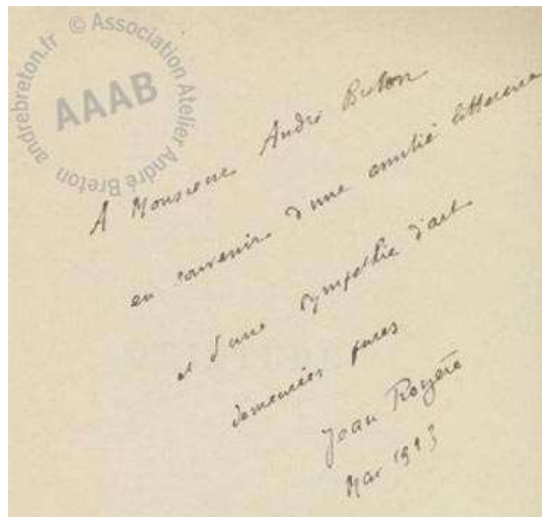 andrebreton.fr © Association Atelier André Breton
AAAB
A Monsieur André Breton
en souvenir d'une amitié littéraire
et d'une sympathie d'art
demeurées pures
Jean Royère
Mai 1913